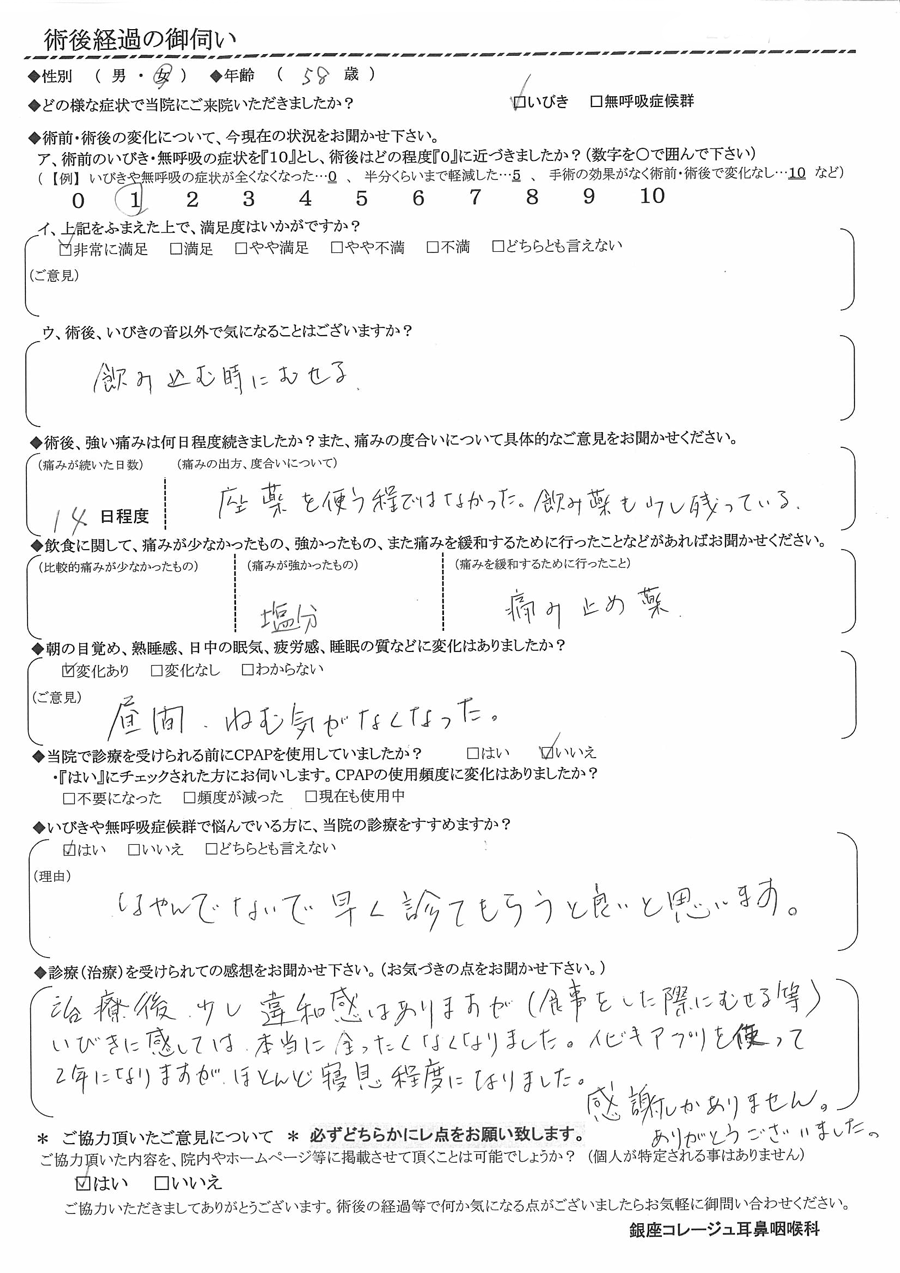 術後経過の御伺い
◆性別 ( 男 ・ 女 ) ◆年齢 ( 58 歳 )
◆どの様な症状で当院にご来院いただきましたか? ☑いびき □無呼吸症候群
◆術前・術後の変化について、今現在の状況をお聞かせ下さい。
ア、術前のいびき・無呼吸の症状を『10』とし、術後はどの程度『0』に近づきましたか?(数字を○で囲んで下さい)
(【例】いびきや無呼吸の症状が全くなくなった…0 、 半分くらいまで軽減した…5 、 手術の効果がなく術前・術後で変化なし…10 など)
0 1 2 3 4 5 6 7 8 9 10
イ、上記をふまえた上で、満足度はいかがですか?
☑非常に満足 □満足 □やや満足 □やや不満 □不満 □どちらとも言えない
(ご意見)
ウ、術後、いびきの音以外で気になることはございますか?
飲み込む時にむせる.
◆術後、強い痛みは何日程度続きましたか?また、痛みの度合いについて具体的なご意見をお聞かせください。
(痛みが続いた日数) (痛みの出方、度合いについて)
14 日程度 座薬を使う程ではなかった。飲み薬も少し残っている.
◆飲食に関して、痛みが少なかったもの、強かったもの、また痛みを緩和するために行ったことなどがあればお聞かせください。
(比較的痛みが少なかったもの) (痛みが強かったもの) (痛みを緩和するために行ったこと)
塩分 痛み止め薬.
◆朝の目覚め、熟睡感、日中の眠気、疲労感、睡眠の質などに変化はありましたか?
☑変化あり □変化なし □わからない
(ご意見)
昼間、ねむ気がなくなった。
◆当院で診療を受けられる前にCPAPを使用していましたか? □はい ☑いいえ
・『はい』にチェックされた方にお伺いします。CPAPの使用頻度に変化はありましたか?
□不要になった □頻度が減った □現在も使用中
◆いびきや無呼吸症候群で悩んでいる方に、当院の診療をすすめますか?
☑はい □いいえ □どちらとも言えない
(理由)
なやんでないで早く診てもらうと良いと思います。
◆診療(治療)を受けられての感想をお聞かせ下さい。(お気づきの点をお聞かせ下さい。)
治療後、少し違和感はありますが(食事をした際にむせる等)
いびきに感しては、本当に全ったくなくなりました。イビキアプリを使って
2年になりますが、ほとんど寝息程度になりました。
感謝しかありません。
ありがとうございました。
* ご協力頂いたご意見について * 必ずどちらかにレ点をお願い致します。
ご協力頂いた内容を、院内やホームページ等に掲載させて頂くことは可能でしょうか? (個人が特定される事はありません)
☑はい □いいえ
ご協力いただきましてありがとうございます。術後の経過等で何か気になる点がございましたらお気軽に御問い合わせください。
銀座コレージュ耳鼻咽喉科